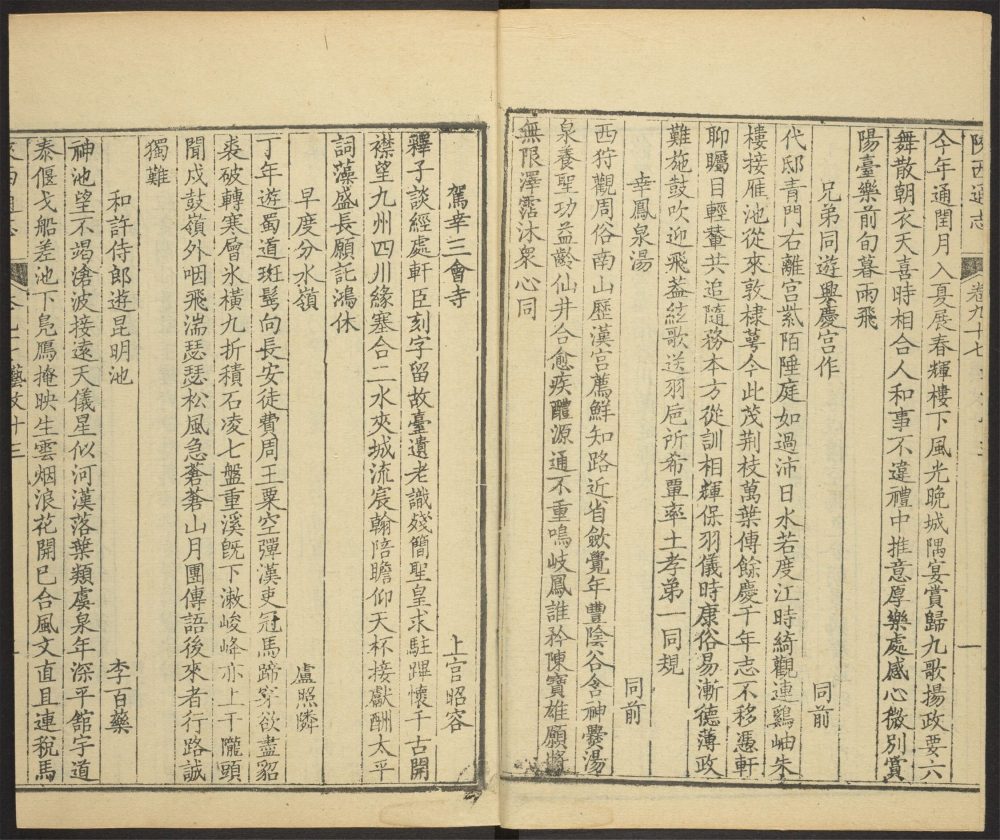 陝西通志 卷九十七
今年通閏月入夏展春輝樓下風光晚城隅宴賞歸九歌揚政要六
舞散朝衣天喜時相合人和事不違禮中推意厚樂處感心微別賞
陽臺樂前旬暮雨飛
兄弟同遊興慶宮作 同前
代邸青門右離宮紫陌陲庭如過沛日水若度江時綺觀連鷄岫朱
樓接雁池從來敦棣萼今此茂荆枝萬葉傳餘慶千年志不移憑軒
聊矚目輕輦共追隨務本方從訓相輝保羽儀時康俗易漸德薄政
難施鼓吹迎飛葢絃歌送羽巵所希覃率土孝弟一同規
幸鳳泉湯 同前
西狩觀周俗南山歷漢宮薦鮮知路近省斂覺年豐陰谷含神爨湯
泉養聖功益齡仙井合愈疾醴源通不重鳴岐鳳誰矜陳寶雄願將
無限澤霑沐衆心同
駕幸三會寺 上官昭容
釋子談經處軒臣刻字留故臺遺老識殘簡聖皇求駐蹕懷千古開
襟望九州四川緣塞合二水夾城流宸翰陪瞻仰天杯接獻酬太平
詞藻盛長願記鴻休
早度分水嶺 盧照隣
丁年遊蜀道斑鬂向長安徒費周王粟空彈漢吏冠馬蹄穿欲盡貂
裘破轉寒曾氷橫九折積石凌七盤重溪旣下漱峻峰亦上干隴頭
聞戍鼓嶺外咽飛湍瑟瑟松風急蒼蒼山月團傳語後來者行路誠
獨難
和許侍郎遊昆明池 李百藥
神池望不竭滄波接遠天儀星似河漢落葉類虞泉年深平館宇道
泰偃戈船差池下鳬鴈掩映生雲烟浪花開巳合風文直且連稅馬
藝文十三